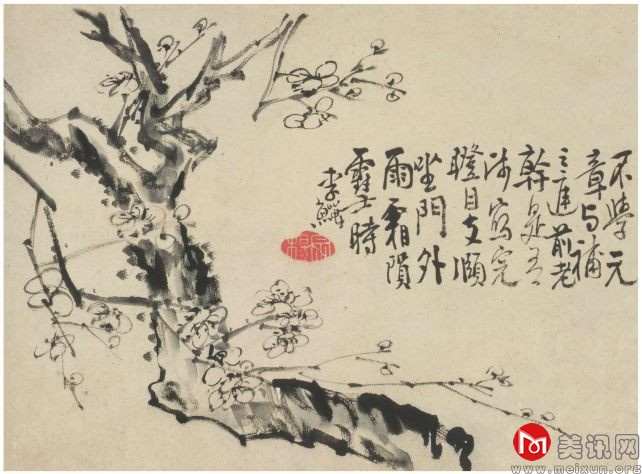 不學元
章与補
之庭前老
幹是吾
师寫完
瞪目支頤
坐門外
雨霜隕
時
李鱓
美讯网
www.meixun.org